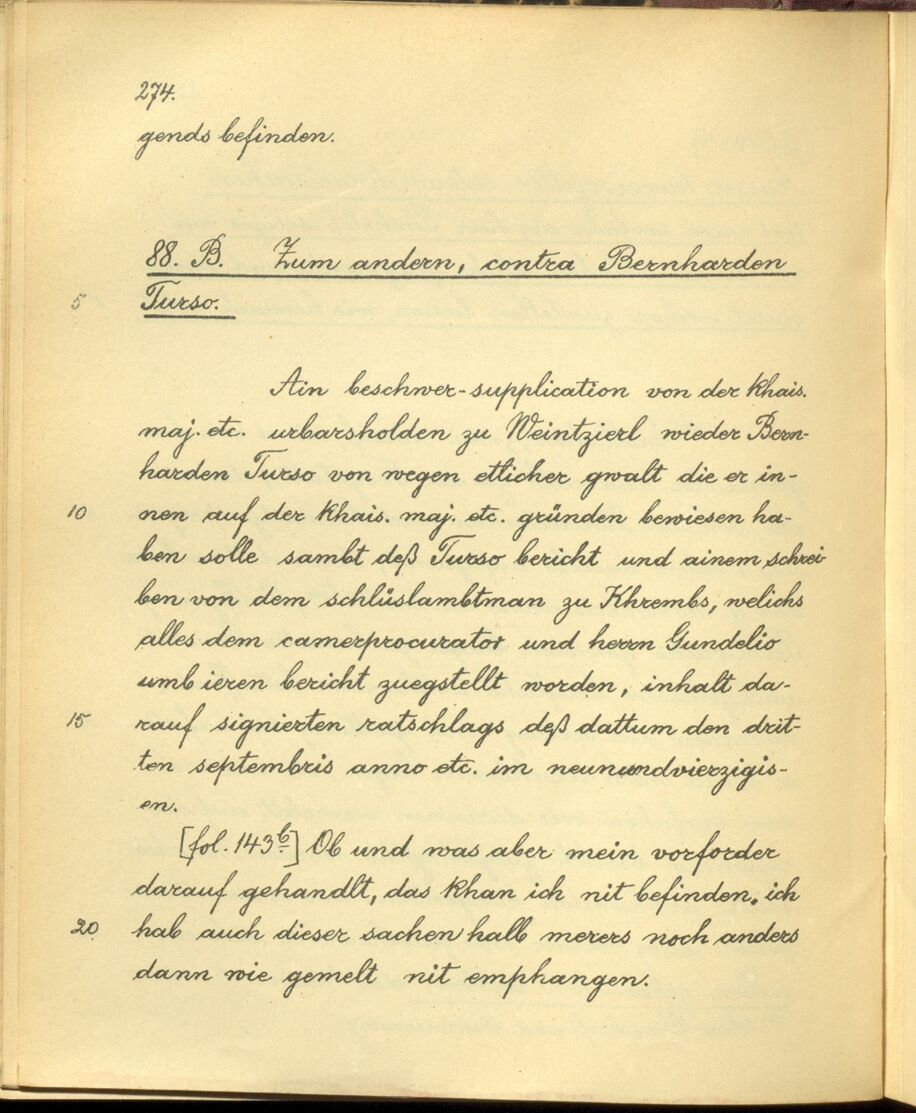 274.
gends befinden.
88. B. Zum andern, contra Bernharden
5 Turso.
Ain beschwer-supplication von der khais.
maj. etc. urbarsholden zu Weintzierl wieder Bern-
harden Turso von wegen etlicher gwalt die er in-
10 nen auf der khais. maj. etc. gründen bewiesen ha-
ben solle sambt deß Turso bericht und ainem schrei
ben von dem schlüslambtman zu Khrembs, welichs
alles dem camerprocurator und herrn Gundelio
umb ieren bericht zuegstellt worden, inhalt da-
15 rauf signierten ratschlags deß dattum den drit-
ten septembris anno etc. im neunundvierzigis-
en.
[fol. 143b] Ob und was aber mein vorforder
darauf gehandlt, das khan ich nit befinden. ich
20 hab auch dieser sachen halb merers noch anders
dann wie gemelt nit emphangen.